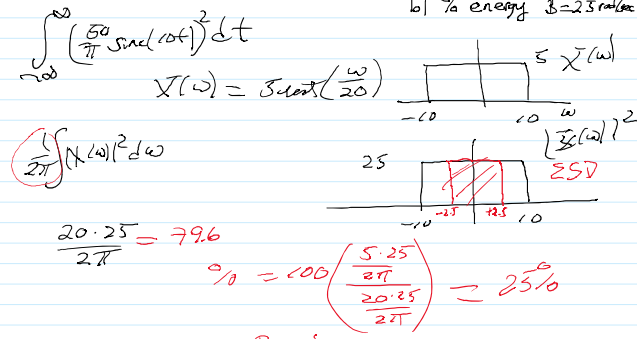 b) % energy B=2.5 rad/sec
∫_{-∞}^{∞} (50/π sinc(10t))² dt
X(ω) = 5 rect(ω/20)
5 X(ω)
-10 10 ω
1/2π ∫|X(ω)|² dω
25 |X(ω)|²
ESD
-10 -2.5 +2.5 10
20·25/2π = 79.6
% = 100 (5·25/2π / 20·25/2π) = 25%